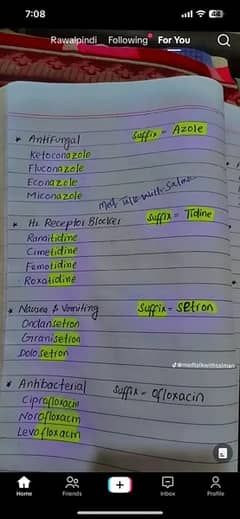 7:08
48
Rawalpindi Following For You
* Antifungal Suffix = Azole
Ketoconazole
Fluconazole
Econazole
Miconazole
Med Talk With Salman
* H2 Receptor Blocker Suffix = Tidine
Ranitidine
Cimetidine
Famotidine
Roxatidine
* Nausea & Vomiting Suffix = Setron
Ondansetron
Granisetron
Dolosetron
@medtalkwithsalman
* Antibacterial Suffix = Ofloxacin
Ciprofloxacin
Norofloxacin
Levofloxacin
Home Friends Inbox Profile